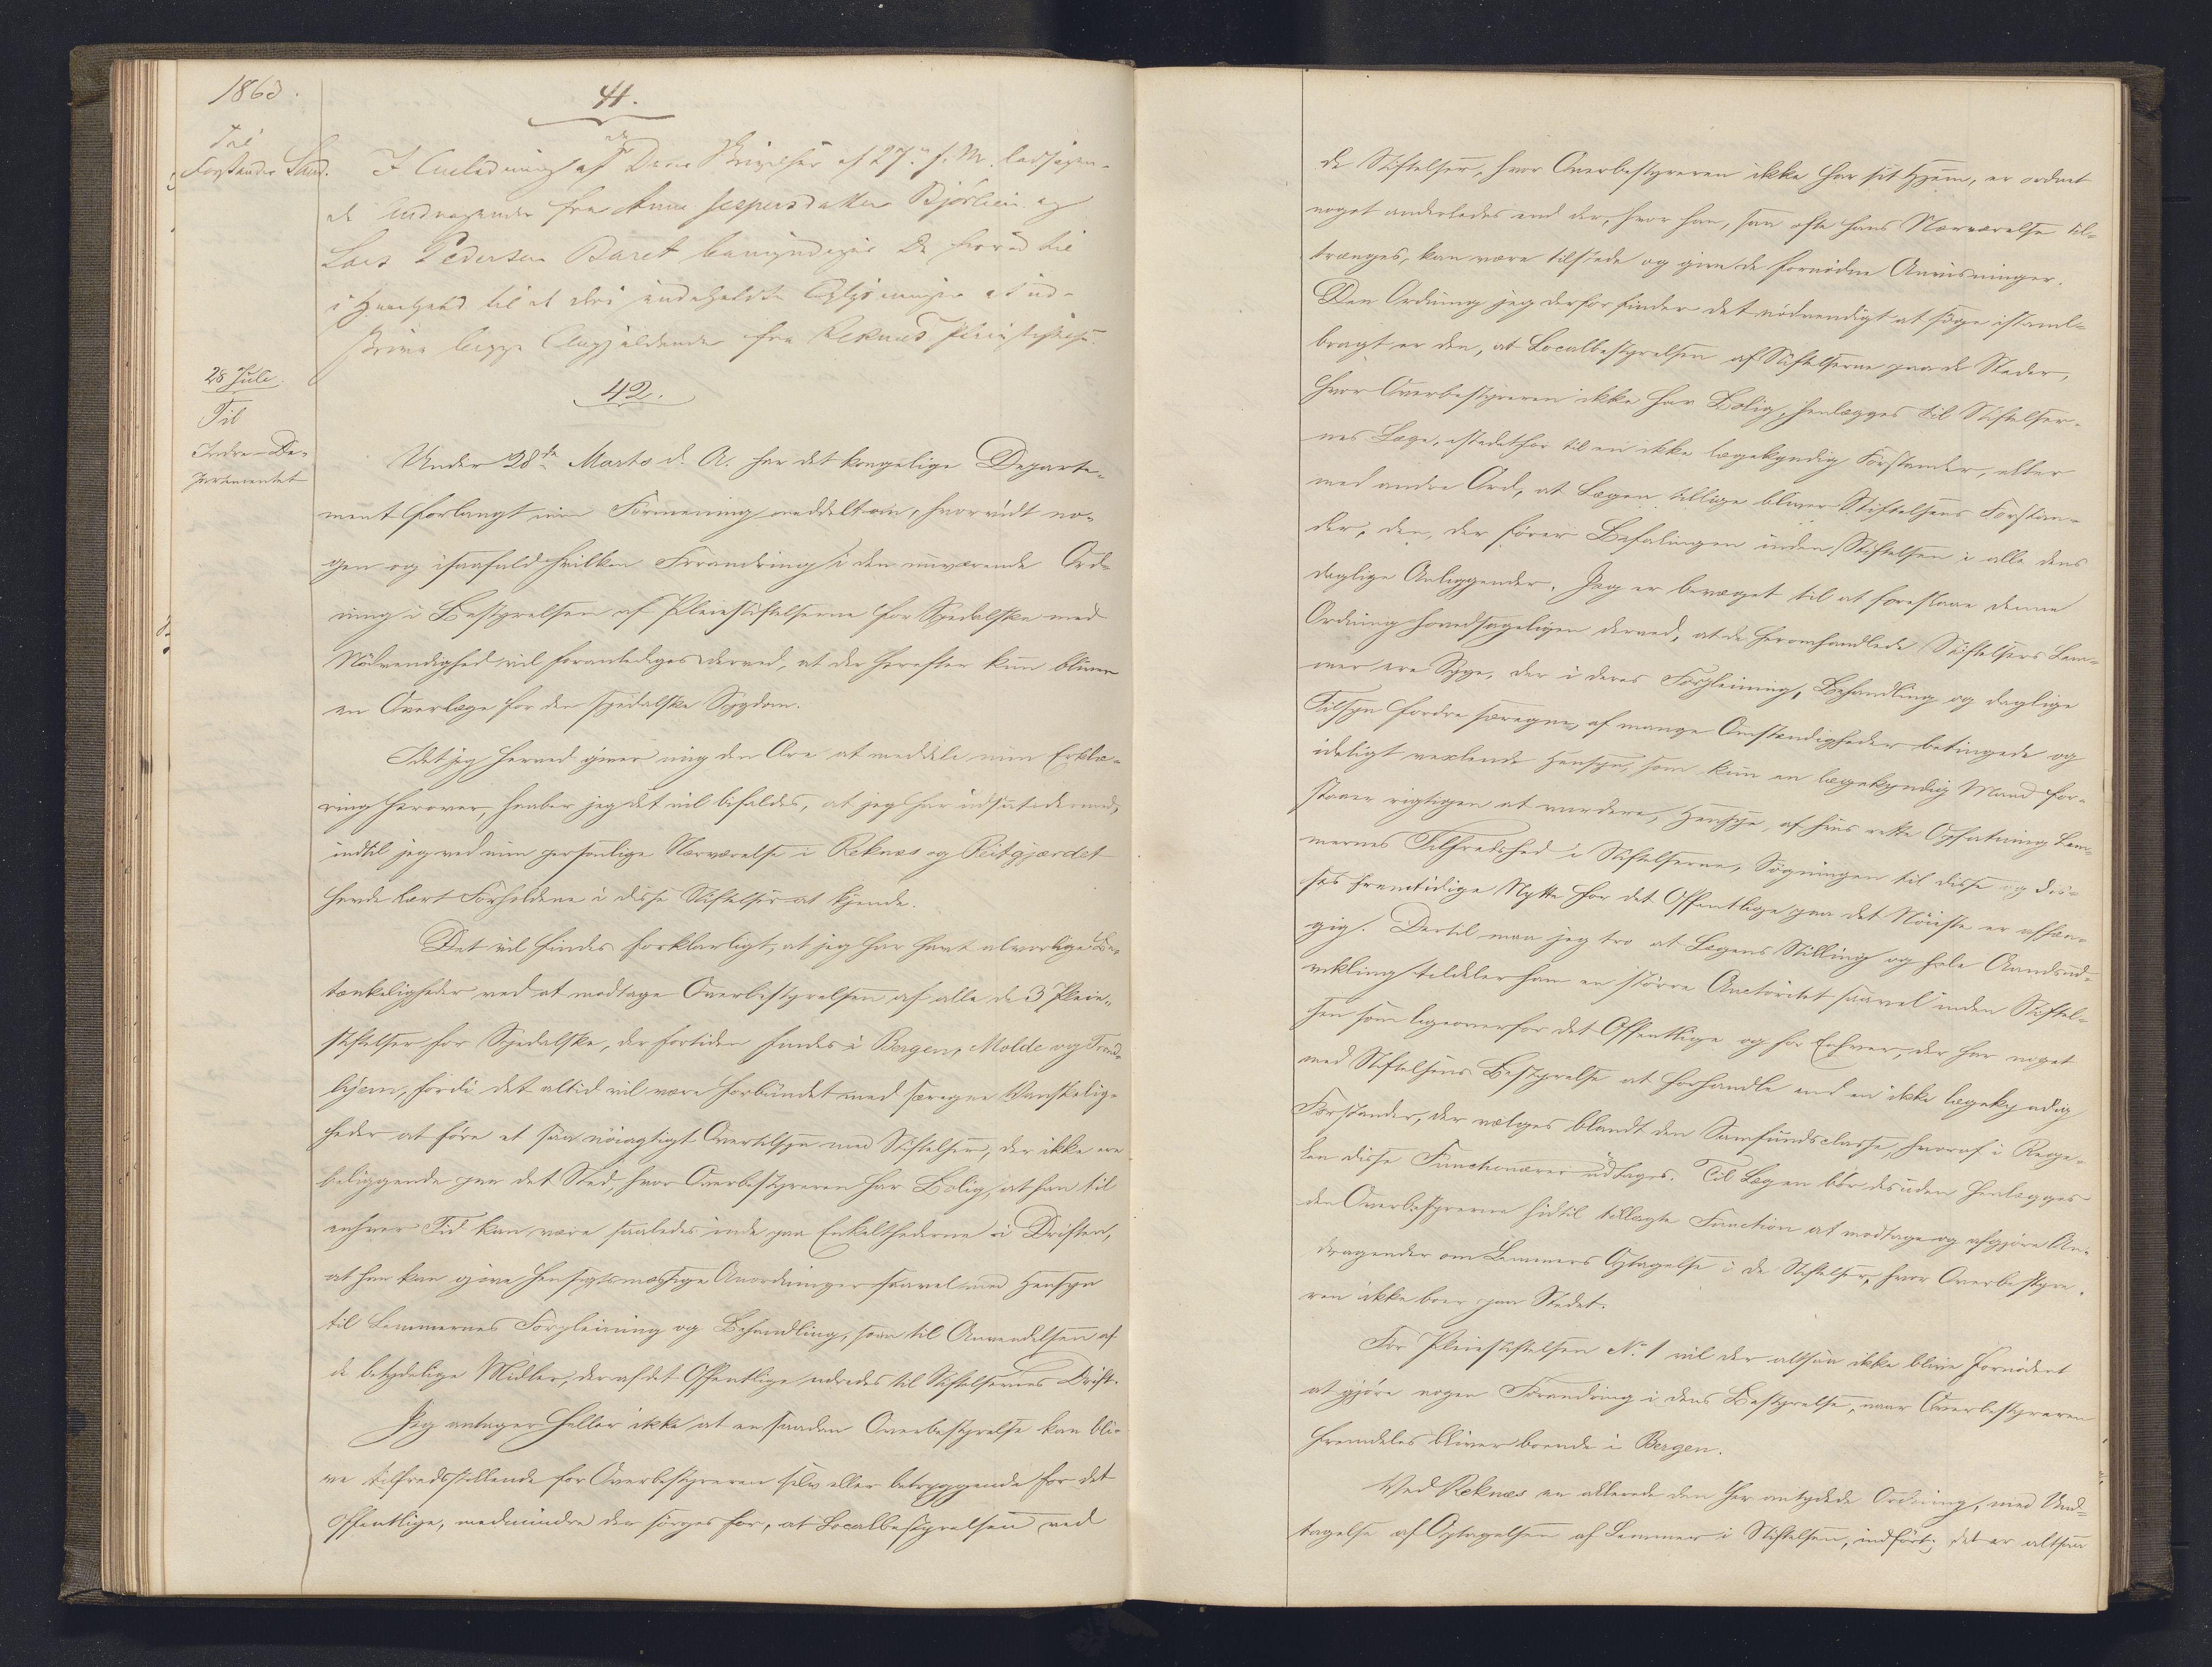 1863.
41.
Til
Forstander Sand.
I Anledning af Deres Skrivelse af 27de f. M. ledsagen-
de Andragender fra Anne Jespersdatter Bjørlien og
Lars Pedersen Baret bemyndiges De herved til
i Henhold til de deri indeholdte Oplysninger at ud-
skrive begge Angjældende fra Reknæs Pleiestiftelse.
28 Juli.
42.
Til
Indre-De-
partementet
Under 28de Marts d. A. har det kongelige Departe-
ment forlangt min Formening meddelt om, hvorvidt no-
gen og isaafald hvilken Forandring i den nuværende Ord-
ning i Bestyrelsen af Pleiestiftelserne for Spedalske med
Nödvendighed vil foranlediges derved, at der herefter kun bliver
en Overlæge for den spedalske Sygdom.
Idet jeg herved giver mig den Ære at meddele min Erklæ-
ring herover, haaber jeg det vil bifaldes, at jeg har udsat dermed,
indtil jeg ved min personlige Nærværelse i Reknæs og Reitgjærdet
havde lært Forholdene i disse Stiftelser at kjende.
Det vil findes forklarligt, at jeg har havt alvorlige Be-
tænkeligheder ved at modtage Overbestyrelsen af alle de 3 Pleie-
stiftelser for Spedalske, der fortiden findes i Bergen, Molde og Trond-
hjem, fordi det altid vil være forbundet med særegne Vanskelig-
heder at före et saa nöiagtigt Overtilsyn med Stiftelser, der ikke ere
beliggende paa det Sted, hvor Overbestyreren har Bolig, at han til
enhver Tid kan være saaledes inde paa Enkelthederne i Driften,
at han kan gjöre hensigtsmæssige Anordninger saavel med Hensyn
til Lemmernes Forpleining og Behandling, som til Anvendelsen af
de betydelige Midler, der af det Offentlige udredes til Stiftelsernes Drift.
Jeg antager heller ikke at en saadan Overbestyrelse kan bli-
ve tilfredsstillende for Overbestyreren selv eller betryggende for det
Offentlige, medmindre der sörges for, at Localbestyrelsen ved
de Stiftelser, hvor Overbestyreren ikke har sit Hjem, er ordnet
noget anderledes end der, hvor han, saa ofte hans Nærværelse til-
trænges, kan være tilstede og give de fornödne Anvisninger.
Den Ordning jeg derfor finder det nödvendigt at söge istand-
bragt er den, at Localbestyrelsen af Stiftelserne paa de Steder,
hvor Overbestyreren ikke har Bolig, henlægges til Stiftelser-
nes Læge, istedetfor til en ikke lægekyndig Forstander, eller
med andre Ord, at Lægen tillige bliver Stiftelsens Forstan-
der, den, der förer Befalingen inden Stiftelsen i alle dens
daglige Anliggender. Jeg er bevæget til at foreslaae denne
Ordning hovedsageligen derved, at de heromhandlede Stiftelsers Lem-
mer ere Syge, der i deres Forpleining, Behandling og daglige
Tilsyn fordre særegne, af mange Omstændigheder betingede og
ideligt vexlende Hensyn, som kun en lægekyndig Mand for-
staaer rigtigen at vurdere, Hensyn, af hvis rette Opfatning Lem-
mernes Tilfredshed i Stiftelserne, Sögningen til disse og dis-
ses fremtidige Nytte for det Offentlige paa det Nöieste er afhæn-
gig. Dertil maa jeg tro at Lægens Stilling og hele Aandsud-
vikling tildeler ham en större Auctoritet saavel inden Stiftel-
sen som ligeoverfor det Offentlige og for Enhver, der har noget
med Stiftelsens Bestyrelse at forhandle end en ikke lægekyndig
Forstander, der vælges blandt den Samfundsclasse, hvoraf i Rege-
len disse Functionærer udtages. Til Lægen bör desuden henlægges
den Overbestyreren hidtil tillagte Function at modtage og afgjöre An-
dragender om Lemmers Optagelse i de Stiftelser, hvor Overbestyre-
ren ikke boer paa Stedet.
For Pleiestiftelsen No. 1 vil der altsaa ikke blive fornödent
at gjöre nogen Forandring i dens Bestyrelse, naar Overbestyreren
fremdeles bliver boende i Bergen.
Ved Reknæs er allerede den her antydede Ordning, med Und-
tagelse af Optagelsen af Lemmer i Stiftelsen, indfört; det er altsaa